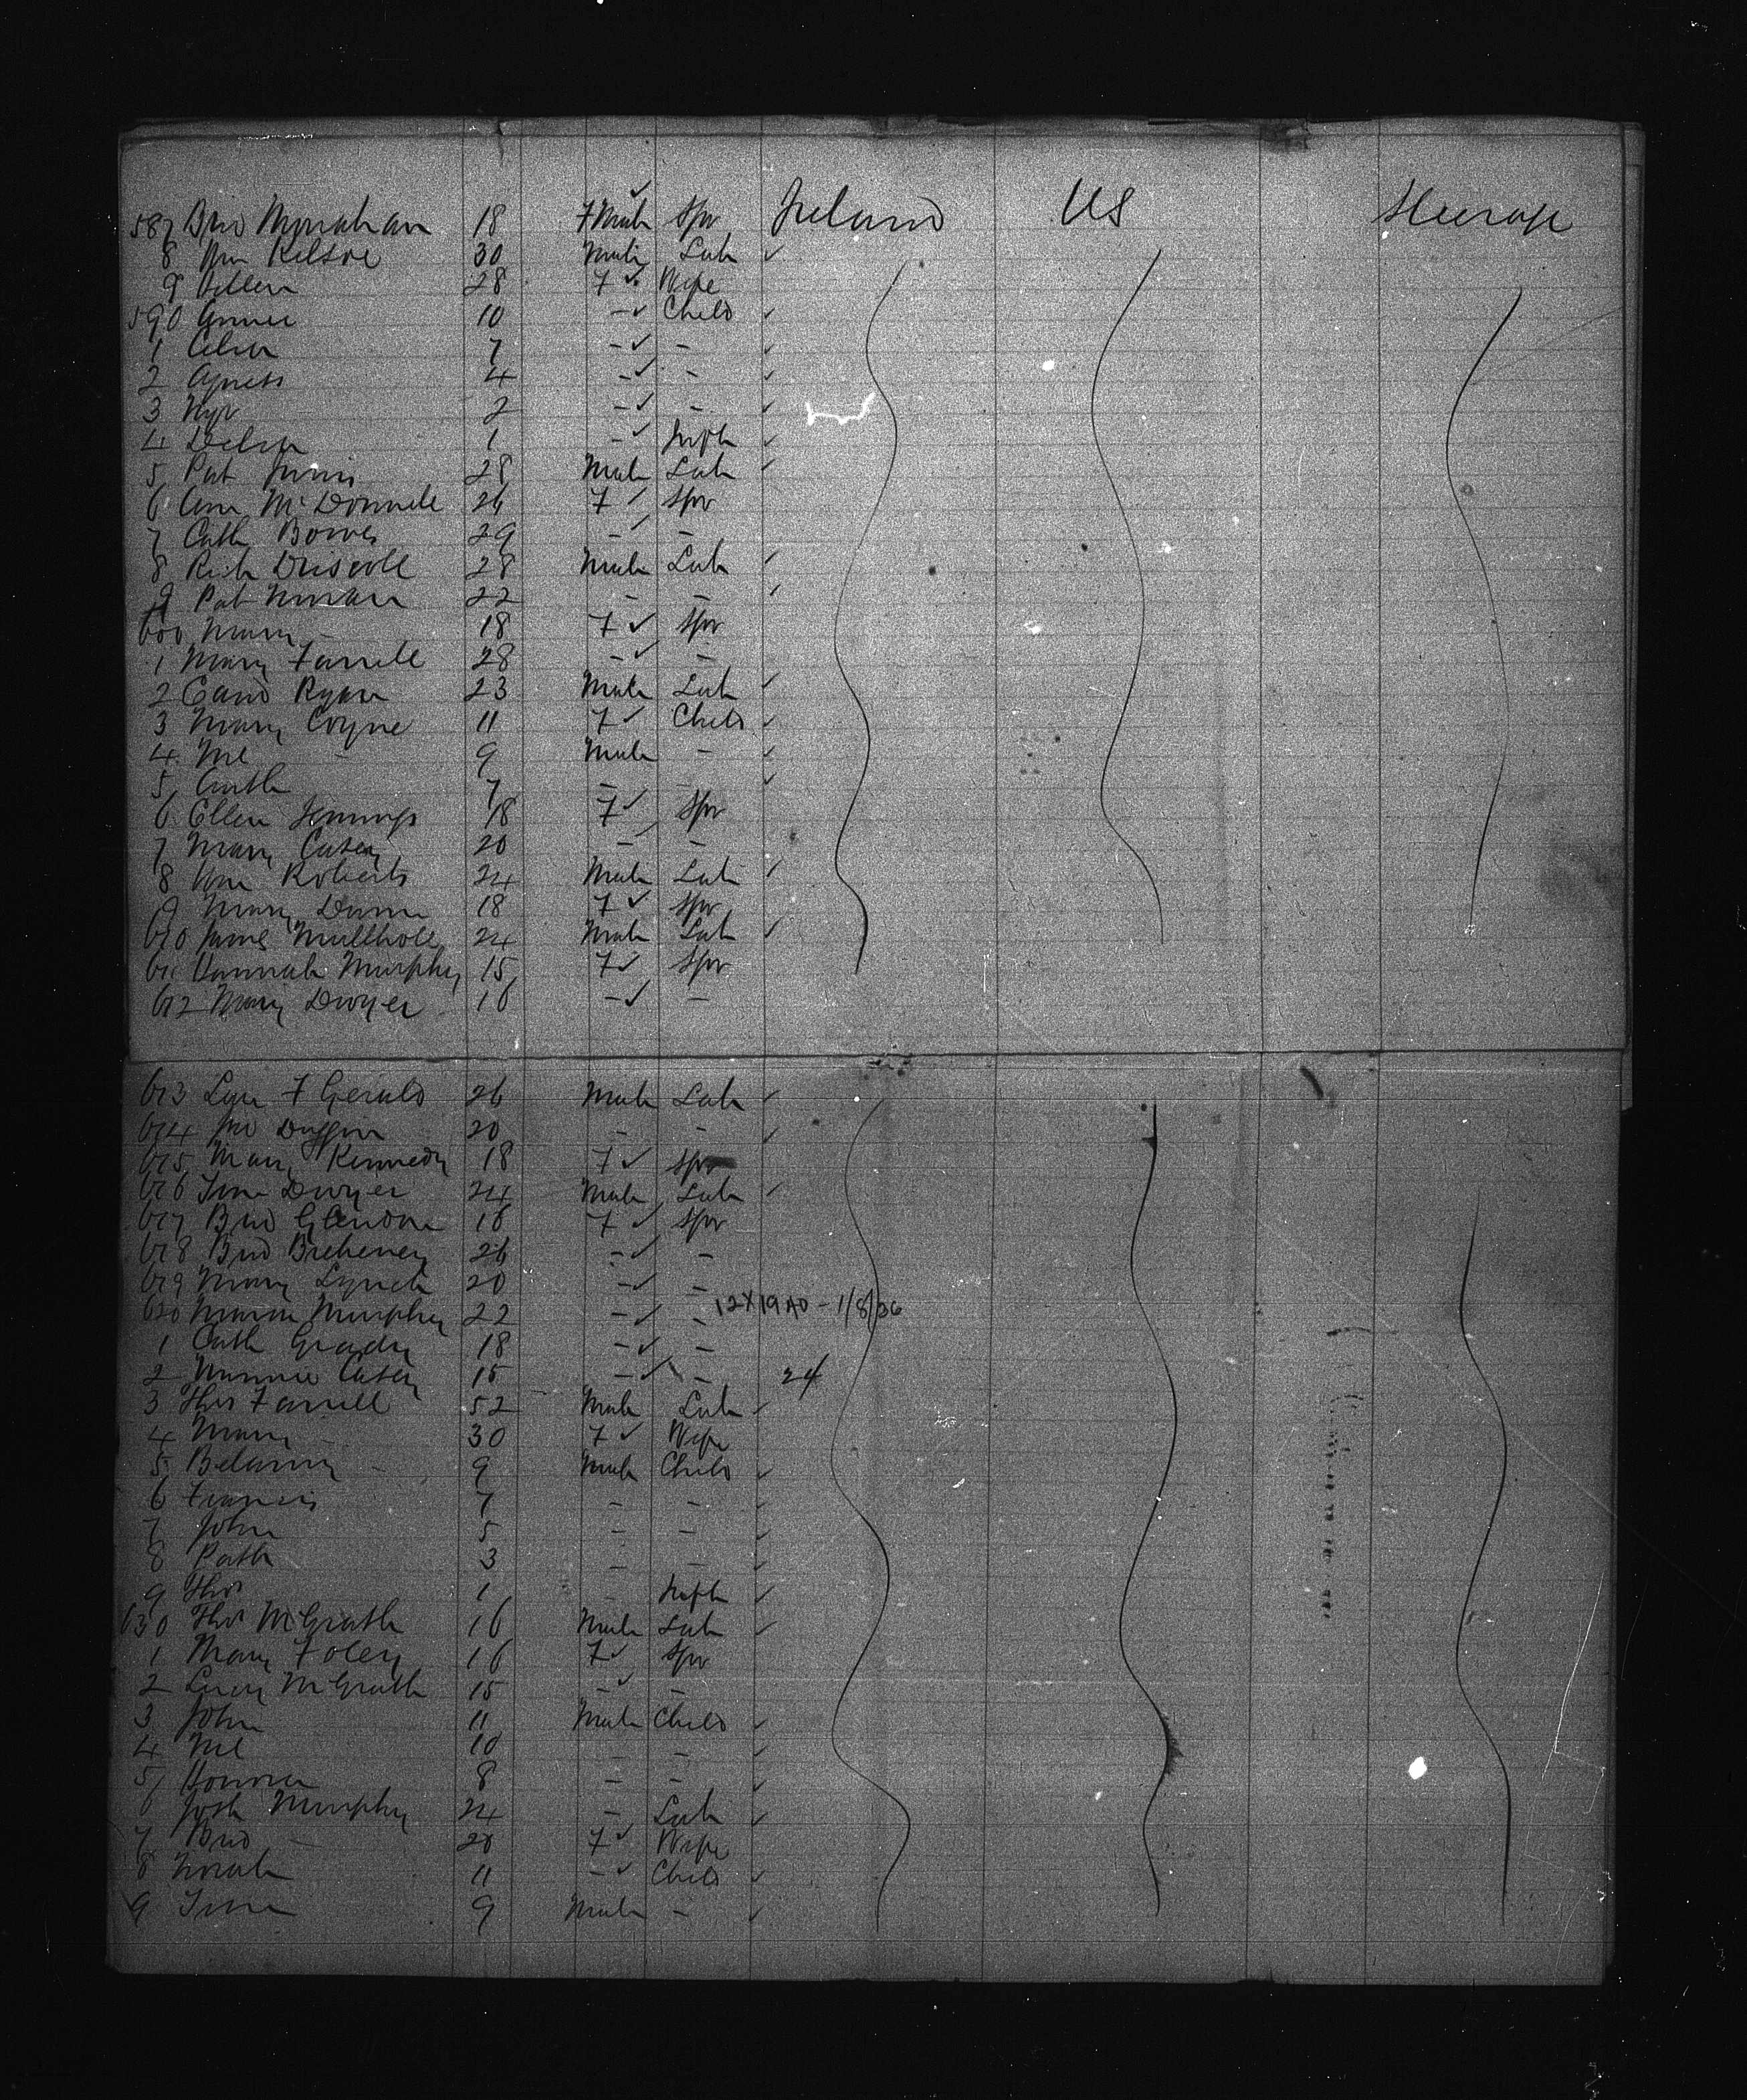 587 Brid Monahan 18 F Male Spr Ireland US Steerage
8 Wm Kelson 30 Male Lab
9 Ellen 28 F Wife
590 Annie 10 - Child
1 Celia 7 - -
2 Agness 4 - -
3 2 - -
4 Delia 1 - Inft
5 Pat 28 Male Lab
6 Ann McDonnell 26 F Spr
7 Cath Bowes 29 - -
8 Rich Driscoll 28 Male Lab
9 Pat 22 - -
600 Mary - 18 F Spr
1 Mary Farrell 28 - -
2 Ryan 23 Male Lab
3 Mary Coyne 11 F Child
4 Ml 9 Male -
5 7 - -
6 Ellen Jennings 18 F Spr
7 Mary Casey 20 - -
8 Wm Roberts 24 Male Lab
9 Mary Dunn 18 F Spr
610 James Mullholl 24 Male Lab
611 Hannah Murphy 15 F Spr
612 Mary Dwyer 16 - -
613 F Gerald 26 Male Lab
614 Jno Duggin 20 - -
615 Mary Kennedy 18 F Spr
616 Tim Dwyer 24 Male Lab
617 Brid Glendon 18 F Spr
618 Brid Breheney 26 - -
619 Mary Lynch 20 - -
620 Maria Murphy 22 - - 12X19AD - 1/8/36
1 Cath Grady 18 - -
2 Minnie Casey 15 - - 24
3 Thos Farrell 52 Male Lab
4 Mary - 30 F Wife
5 - 9 Male Child
6 Francis 7 - -
7 John 5 - -
8 Patk 3 - -
9 Thos 1 - Inft
630 Thos McGrath 16 Male Lab
1 Mary Foley 16 F Spr
2 Lucy McGrath 15 - -
3 John 11 Male Child
4 Ml 10 - -
5 Honora 8 - -
6 Josh Murphy 24 - Lab
7 Brid - 28 F Wife
8 Norah 11 - Child
9 Tim 9 Male -